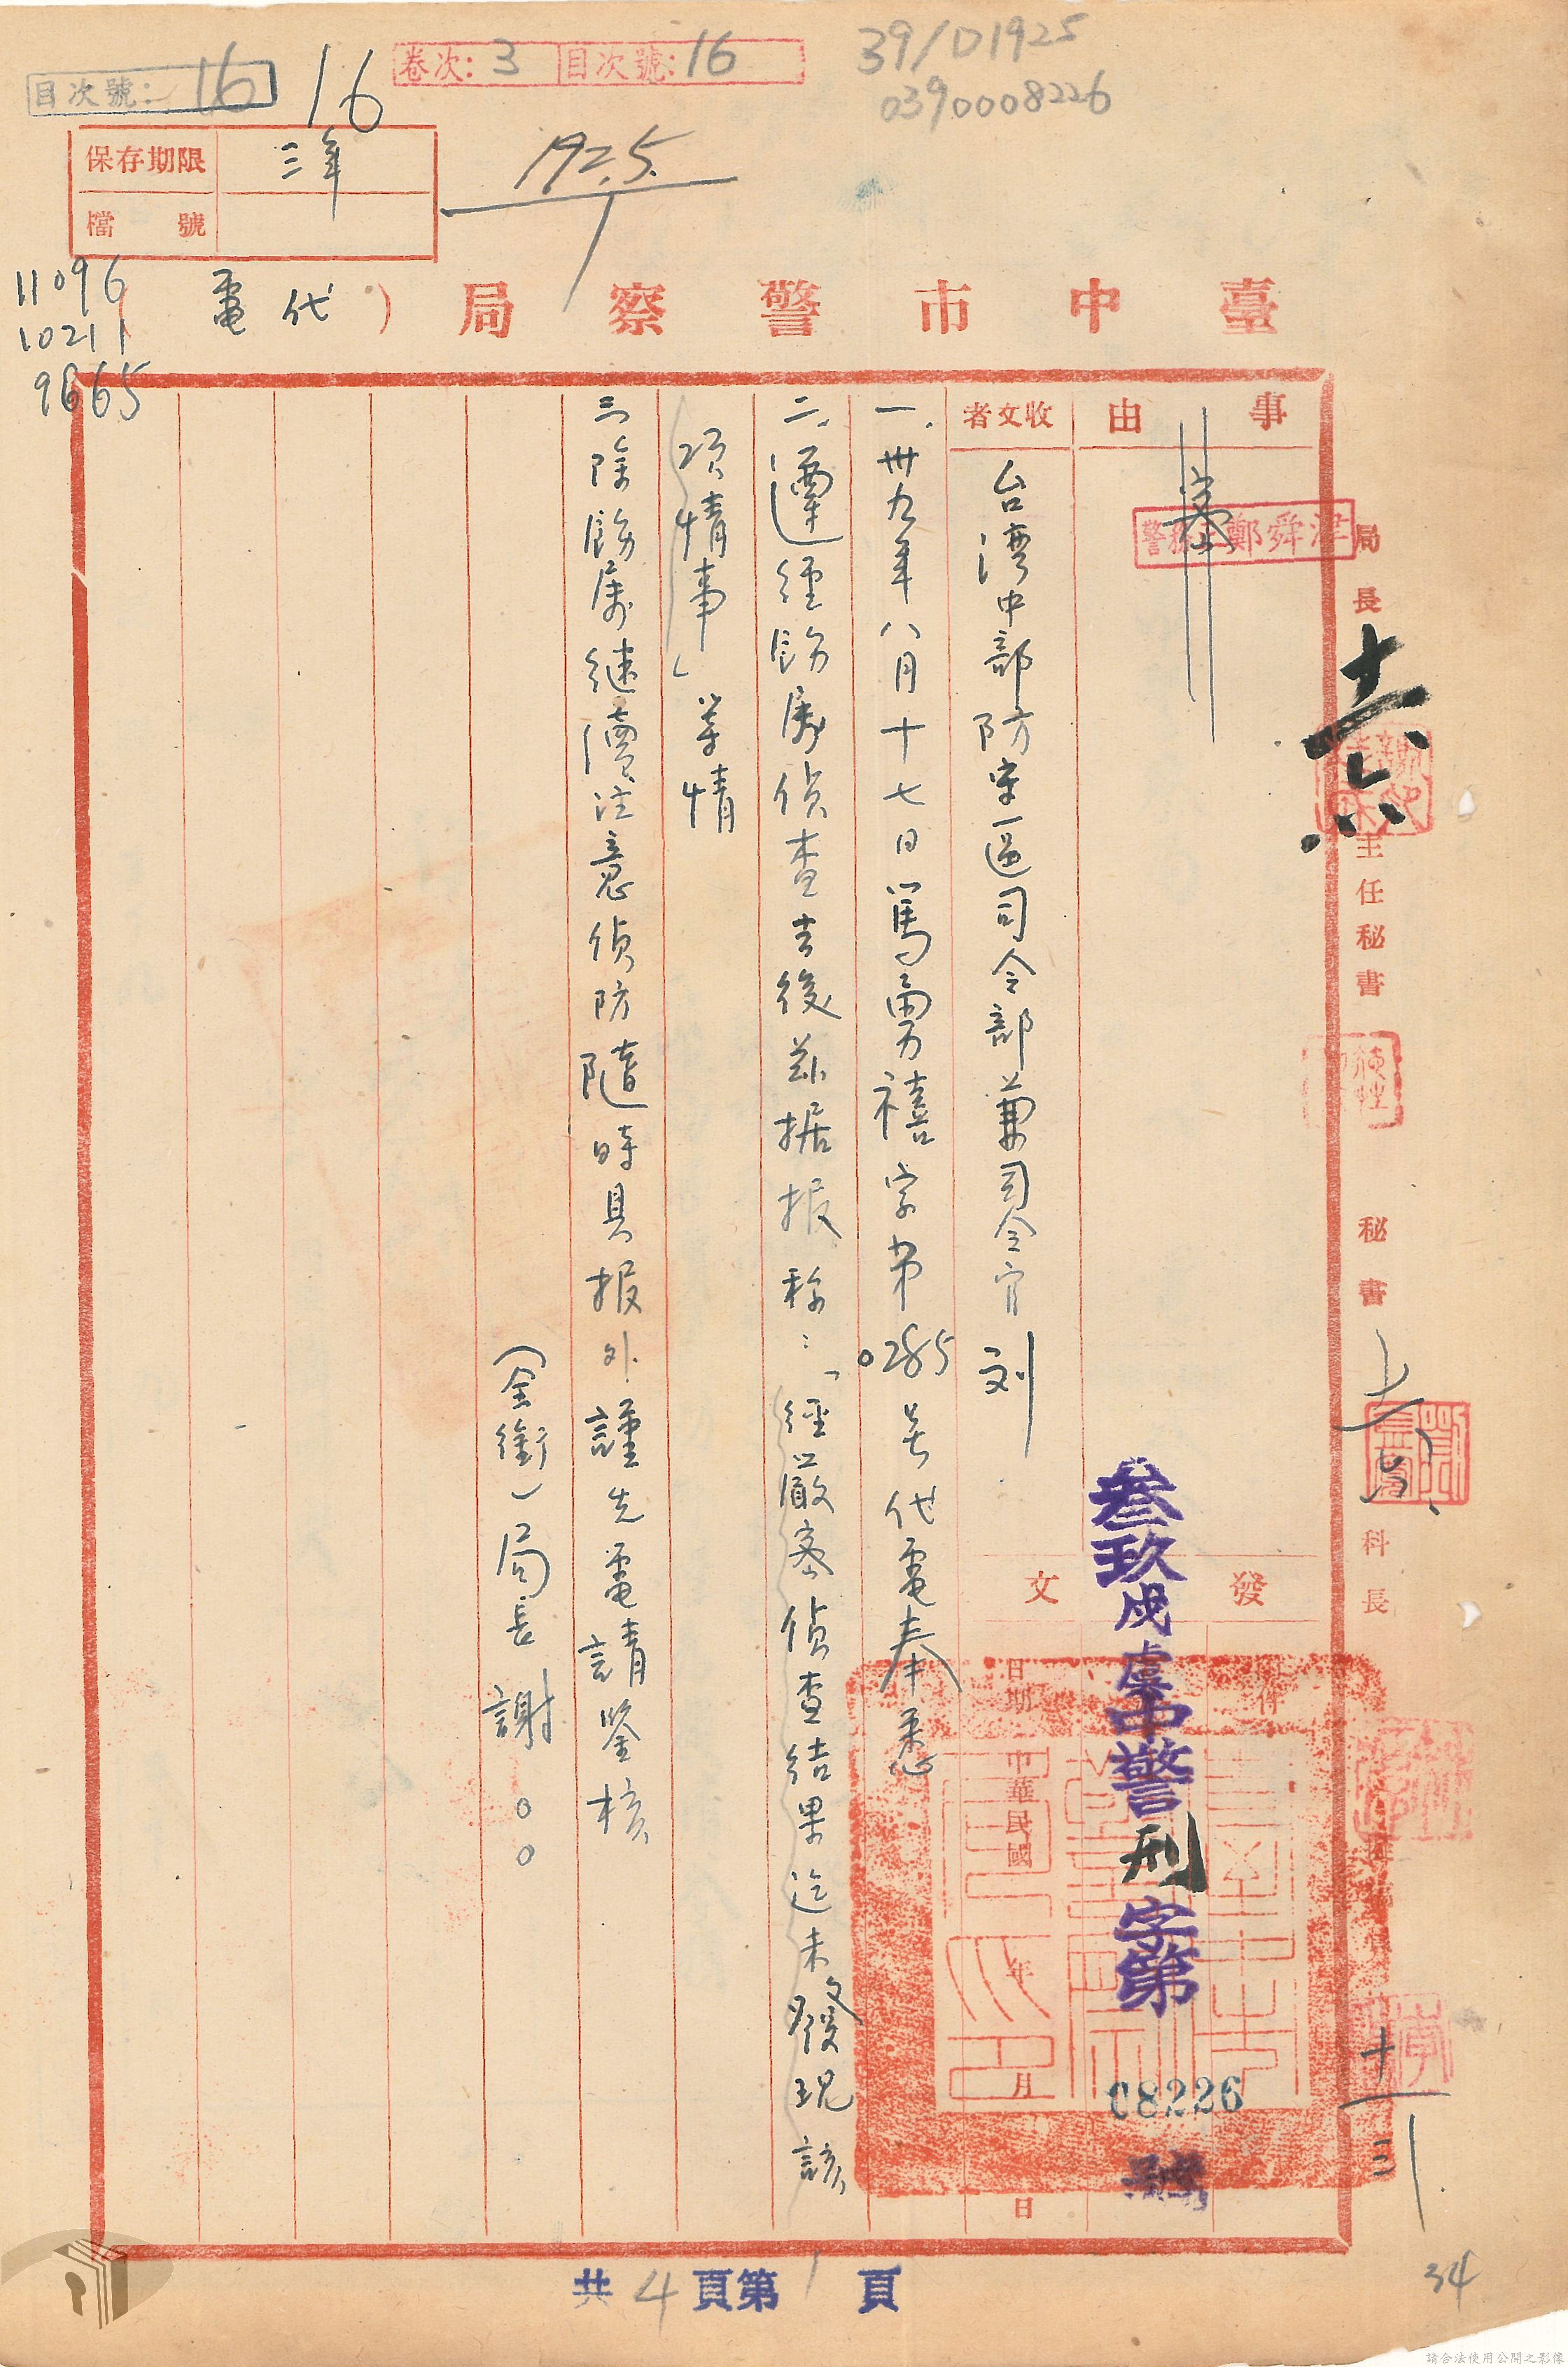 39/D1925
0390008226
卷次：3 目次號：16
目次號：16
16
保存期限 三年
檔號
192.5.
1
11096
10211
9665
臺中市警察局（代電
事由
警務正鄭舜津
收文者
台湾中部防守區司令部兼司令官刘
一、卅九年八月十七日篤勇禧字第0285号代電奉悉
二、遵經飭屬偵查去後茲据报称：「經嚴密偵查結果迄未發現該
項情事」等情
三、除飭屬継續注意偵防隨時具报外謹先電請鑒核
（全銜）局長謝００
發文
附件
日期
中華民國 年 月 日
叁玖戍虞中警刑字第08226號
局長
主任秘書
秘書
科長
十六
十
三
共4頁第1頁
34
請合法使用公開之影像